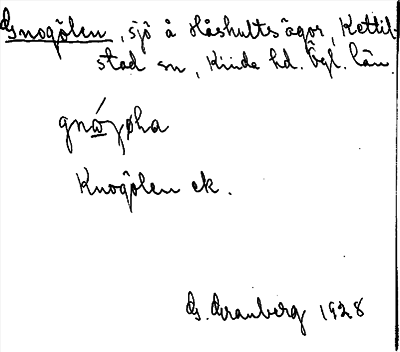 Gnogölen, sjö å Håshults ägor, Kettil-
stad sn, Kinda hd. Ögl. län.
Knogölen ek.
G. Granberg 1928